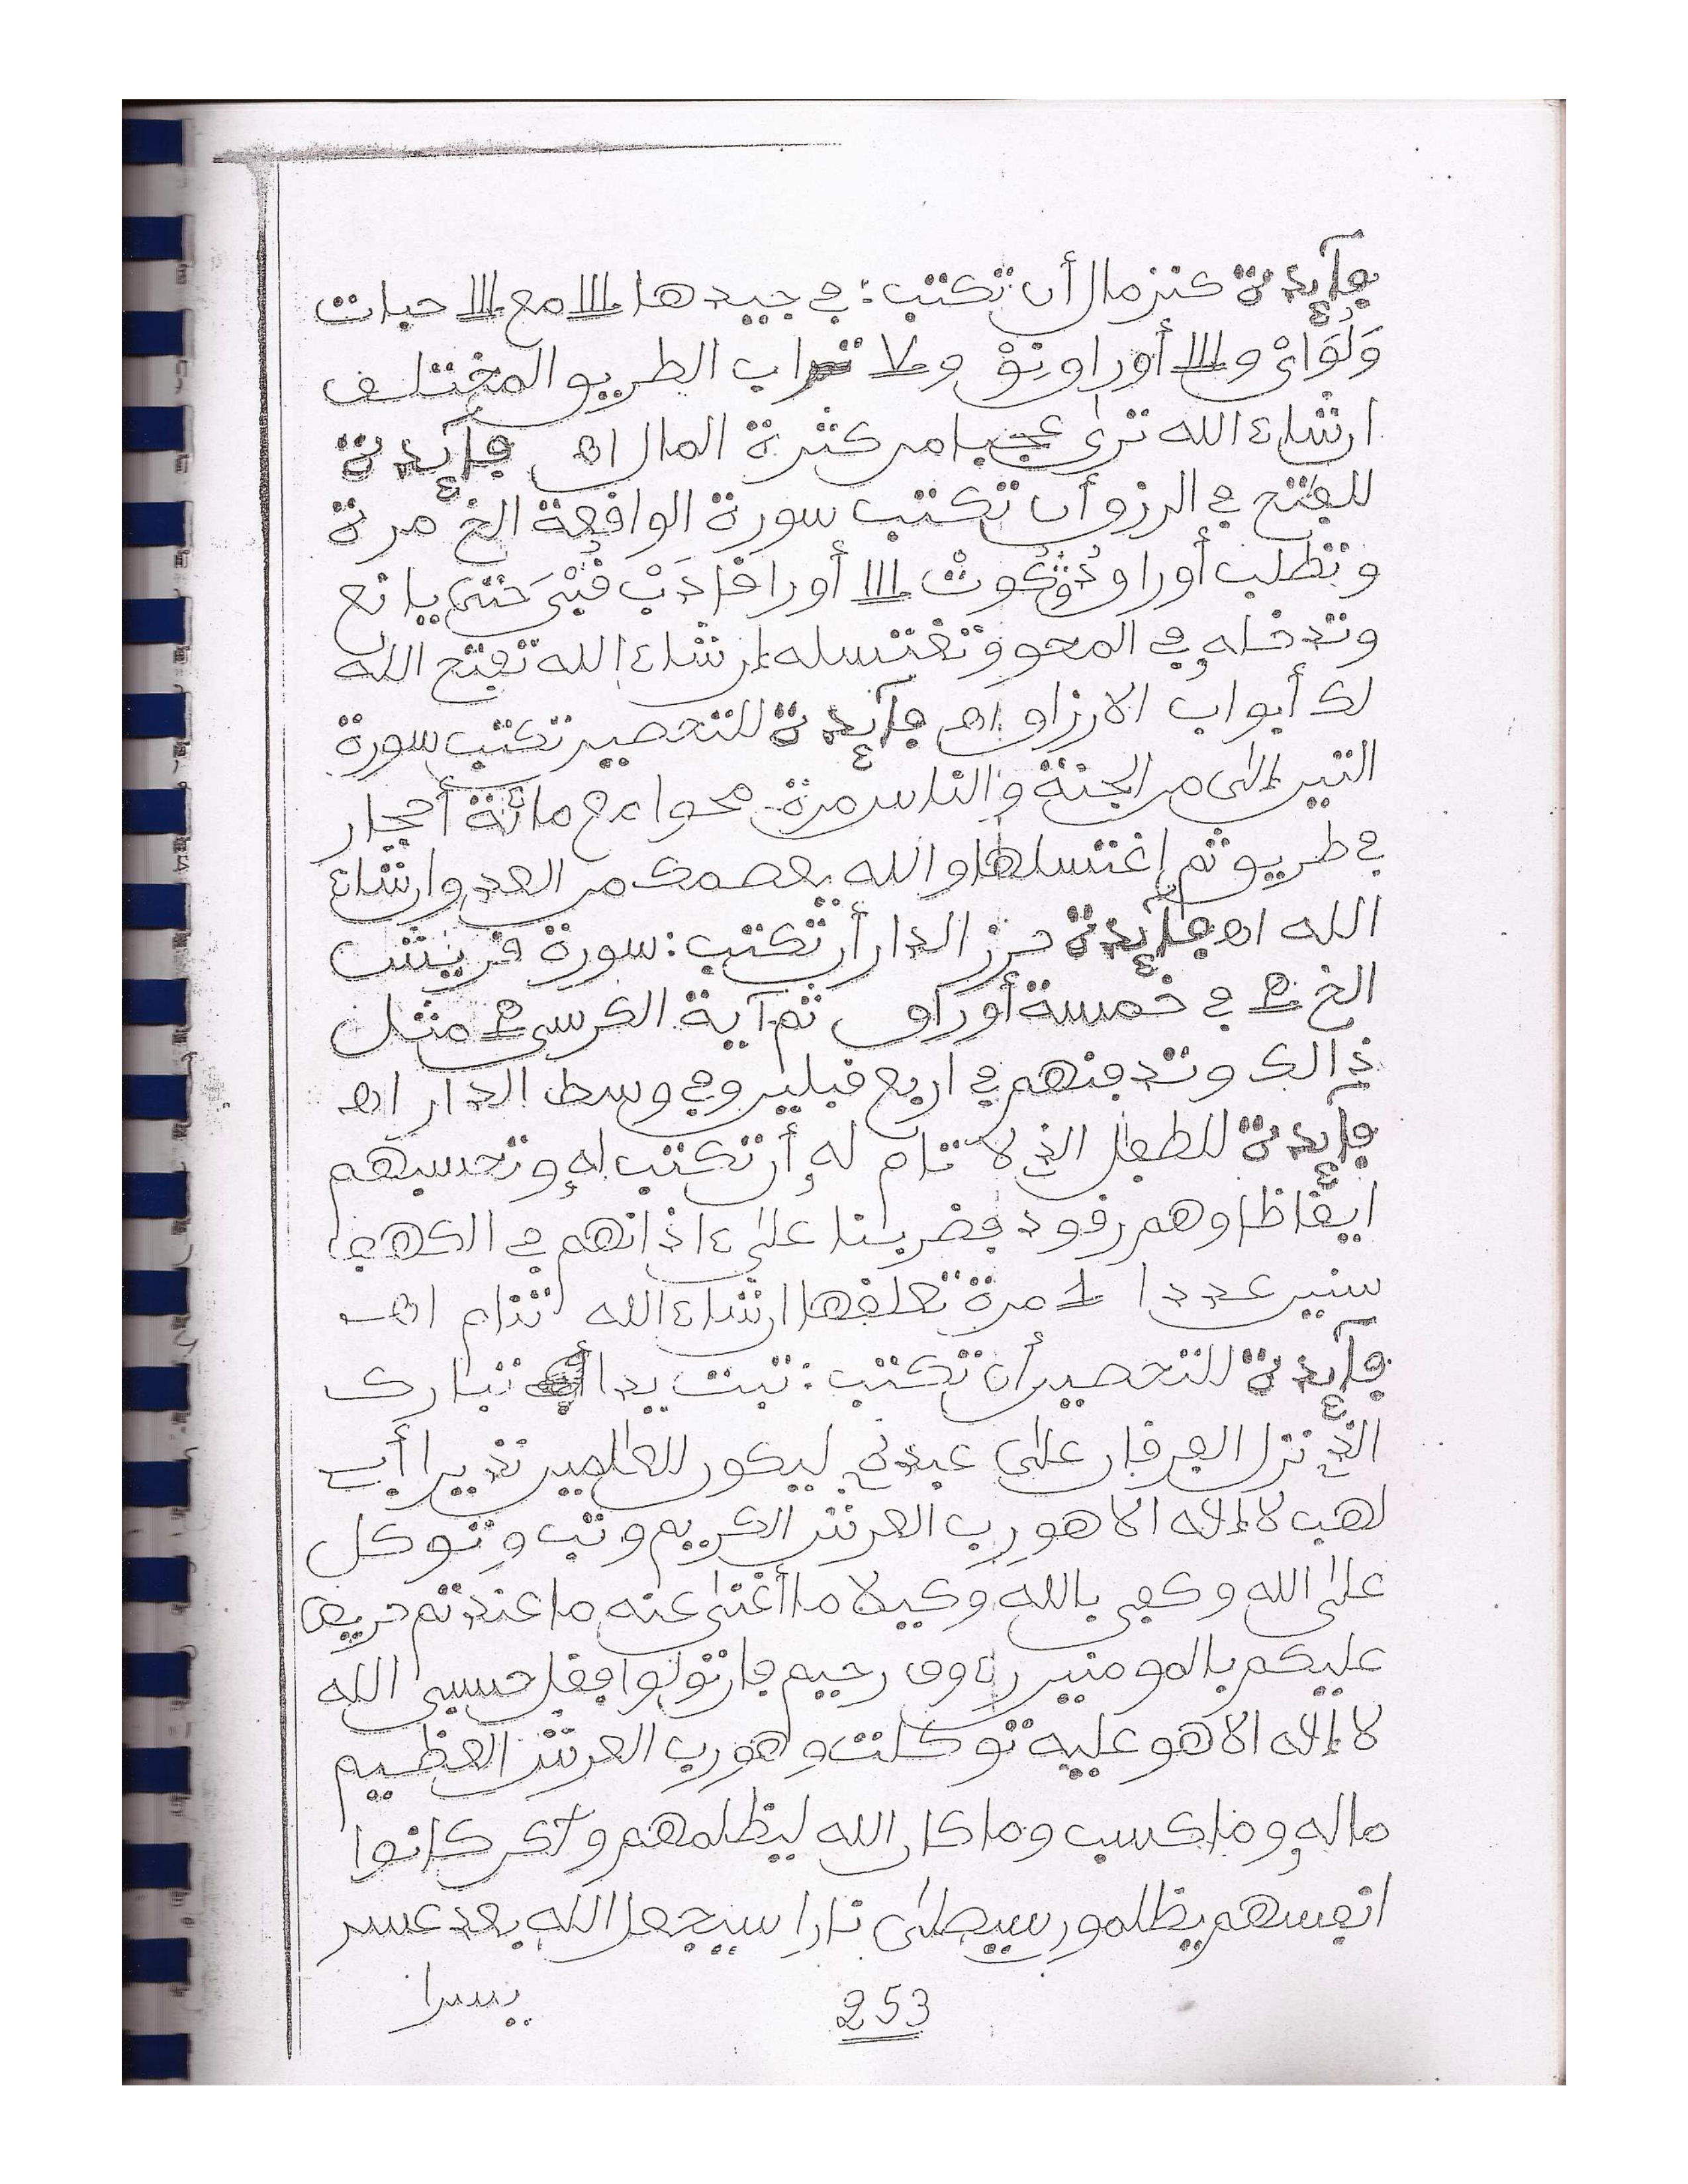 فآئدة كنز مال أن تكتب: في جيدها 111 مع 111 حبات
وَلُوَايْ و 111 أوراق نِوْ و 7 تراب الطريق المختلف
ان شاء الله ترى عجبا من كثرة المال اهـ فآئدة
للفتح في الرزق أن تكتب سورة الواقعة الخ مرة
وتطلب أوراق 111 أوراقا
وتدخله في المحو وتغتسله إن شاء الله تفتح الله
لك أبواب الارزاق اهـ فآئدة للتحصين تكتب سورة
التين إلى من الجنة والناس مرة محوا مع مائة أحجار
في طريق ثم اغتسلها والله يعصمك من العدو ان شاء
الله اهـ فآئدة حرز الدار أن تكتب: سورة قريش
الخ في خمسة أوراق ثم آية الكرسي مثل
ذالك وتدفنهم في اربع قبلين وفي وسط الدار اهـ
فآئدة للطفل الذي لا تنام له أن تكتب له وتحسبهم
ايقاظا وهم رقود فضربنا على ءاذانهم في الكهف
سنين عددا 1 مرة تعلقها ان شاء الله تنام اهـ
فآئدة للتحصين أن تكتب: تبت يدا تبارك
الذي نزل الفرقان على عبده ليكون للعلمين نذيرا أبي
لهب لا إله الا هو رب العرش الكريم وتب وتوكل
على الله وكفى بالله وكيلا ما أغنى عنه ما عندتم حريص
عليكم بالمومنين رءوف رحيم فان تولوا فقل حسبي الله
لا إله الا هو عليه توكلت وهو رب العرش العظيم
ماله وما كسب وما كان الله ليظلمهم ولكن كانوا
انفسهم يظلمون سيصلى نارا سيجعل الله بعد عسر
يسرا
253